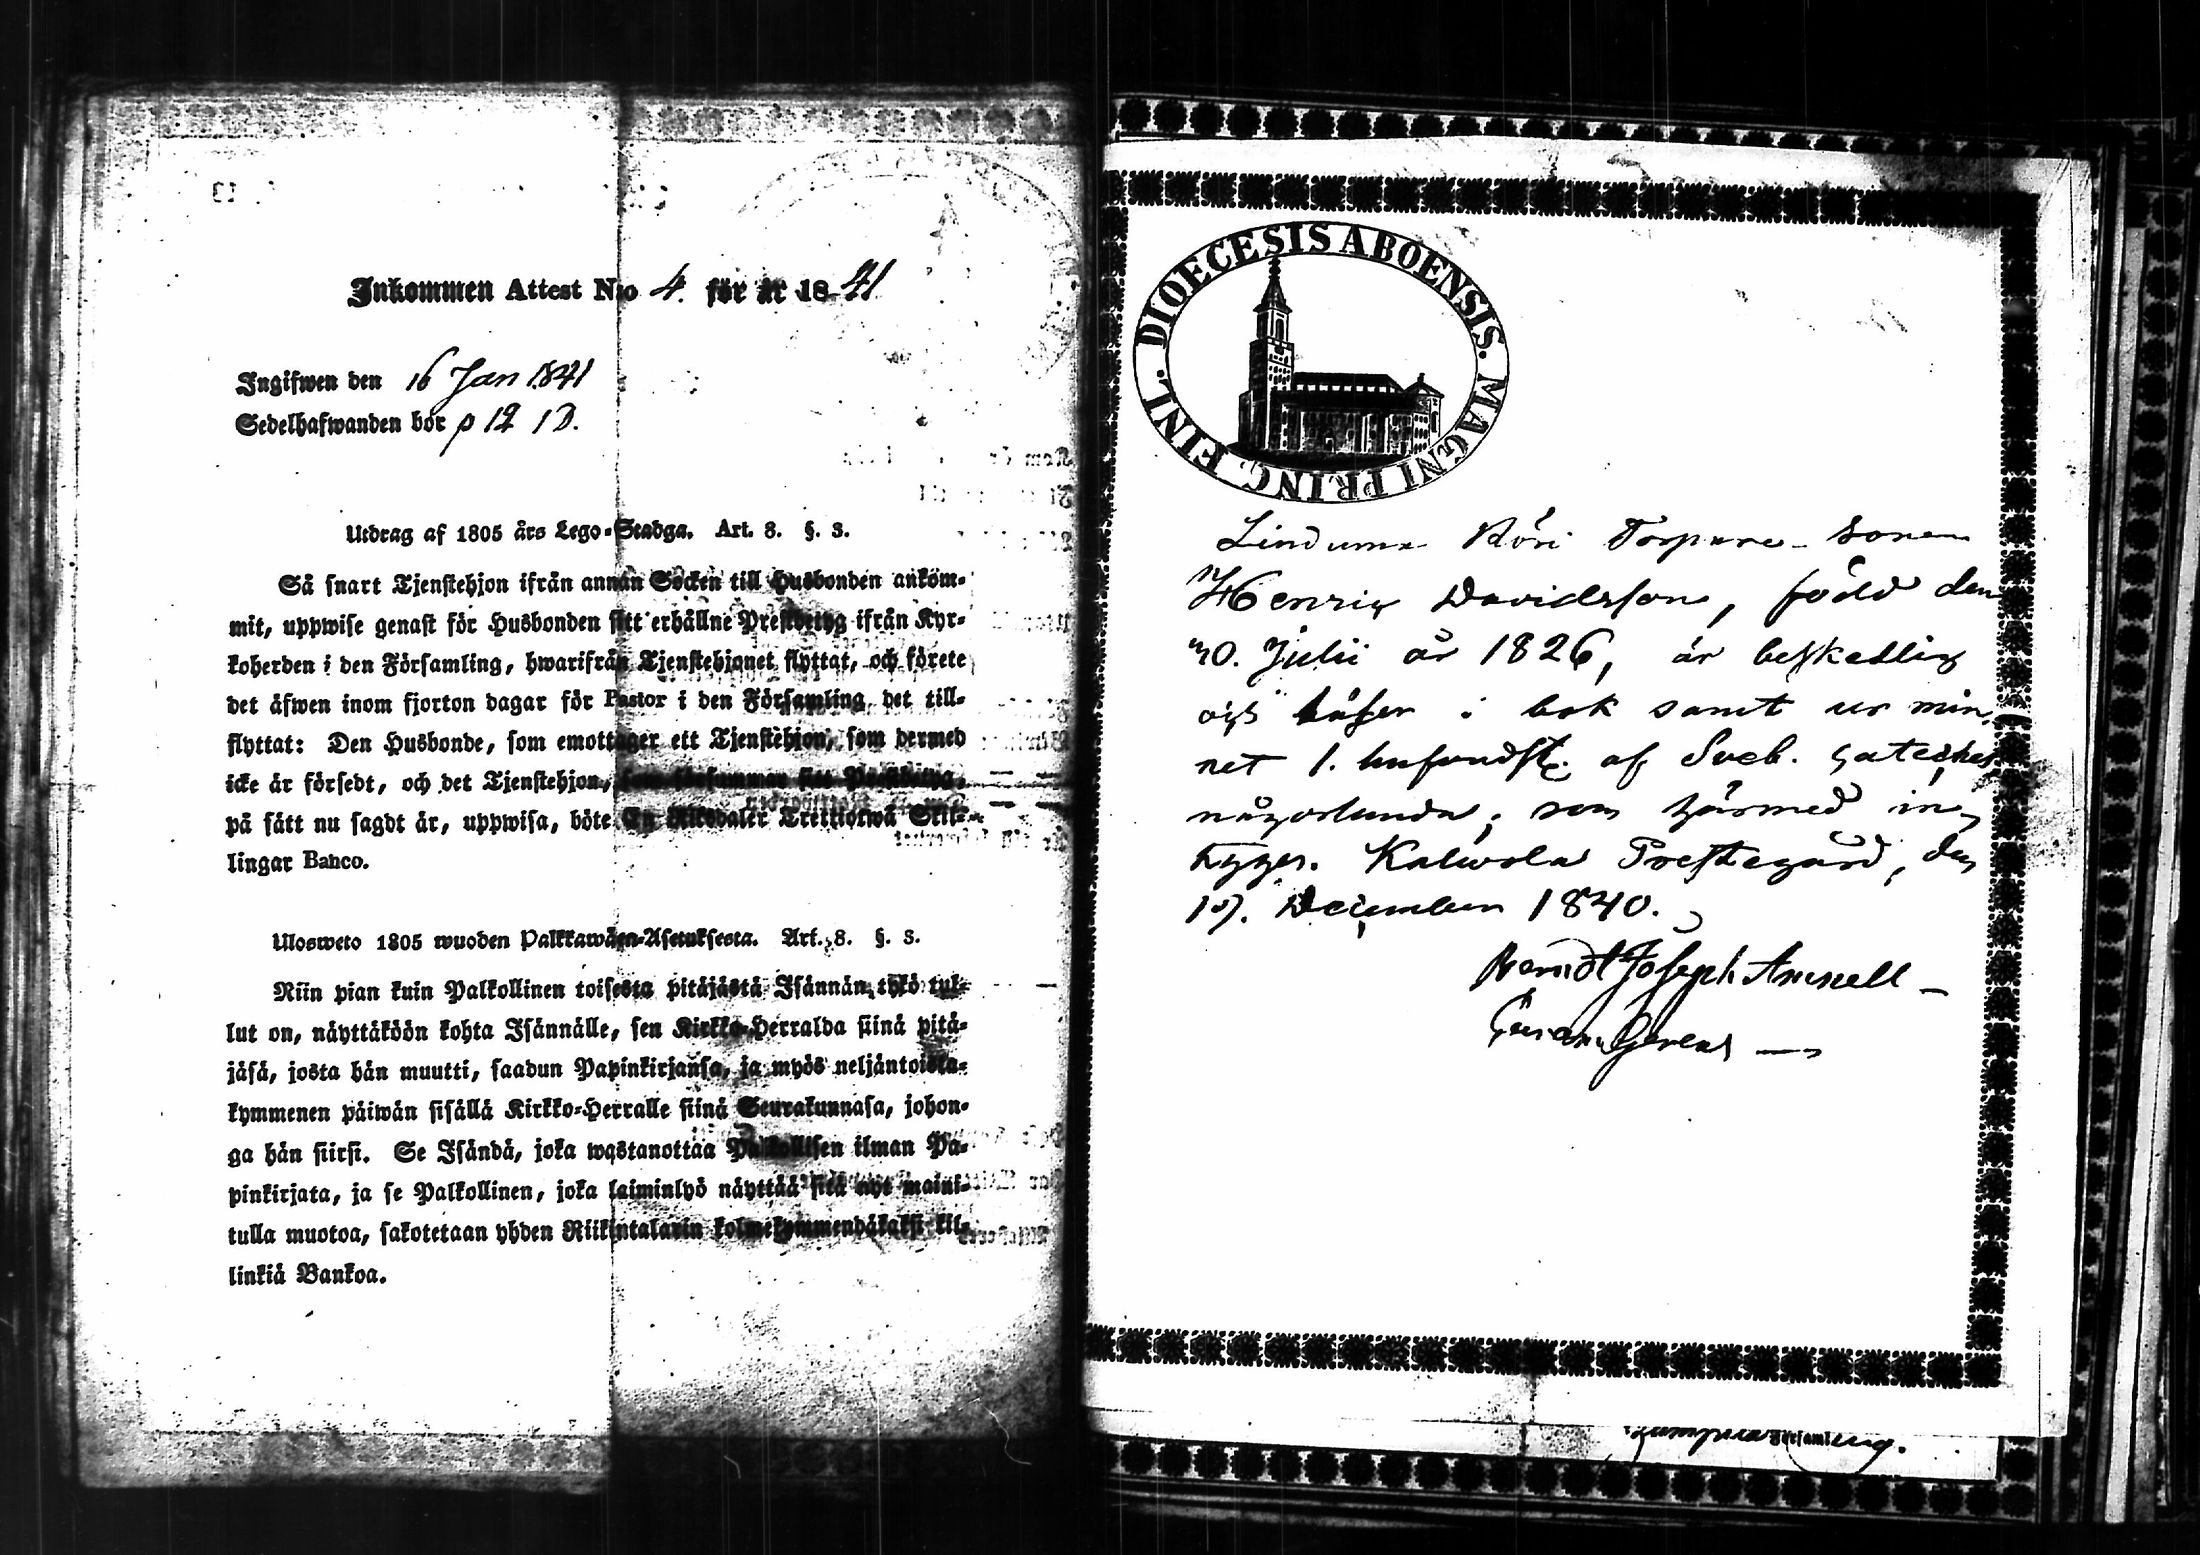 Inkommen Attest N:o 4. för år 1841
Ingifwen den 16 Jan 1841
Sedelhafwanden bor p 12 1D.
Utdrag af 1805 års Lego-Stadga. Art. 8. §. 3.
Så snart Tjenstehjon ifrån annan Socken till Husbonden ankom-
mit, uppwise genast för Husbonden sitt erhållne Prestbetyg ifrån Kyr-
koherden i den Församling, hwarifrån Tjenstehjonet flyttat, och förete
det äfwen inom fjorton dagar för Pastor i den Församling det till-
flyttat: Den Husbonde, som emottager ett Tjenstehjon, som dermed
icke är försedt, och det Tjenstehjon, som försummar sitt Prestbetyg,
på sätt nu sagdt är, uppwisa, böte En Riksdaler Trettiotwå Skil-
lingar Banco.
Ulosweto 1805 wuoden Palkkawäen-Asetuksesta. Art. 8. §. 3.
Niin pian kuin Palkollinen toisesta pitäjästä Isännän tykö tul-
lut on, näyttäköön kohta Isännälle, sen Kirkko-Herralda siinä pitä-
jäsä, josta hän muutti, saadun Papinkirjansa, ja myös neljäntoista-
kymmenen päiwän sisällä Kirkko-Herralle siinä Seurakunnasa, johon-
ga hän siirsi. Se Isändä, joka wastanottaa Palkollisen ilman Pa-
pinkirjata, ja se Palkollinen, joka laiminlyö näyttää sitä nyt maini-
tulla muotoa, sakotetaan yhden Riikintalarin kolmekymmendäkaksi kil-
linkiä Bankoa.
DIOECESIS ABOENSIS. MAGNI PRINC. FINL.
Torpare-sonen
Henric Davidsson, född den
30. Julii år 1826, är beskedlig
och läser i bok samt ur min-
net 1. af Sveb. Cateches
någorlunda; som härmed in-
tygas. Kalvola Prestegård, den
17. December 1840.
Joseph